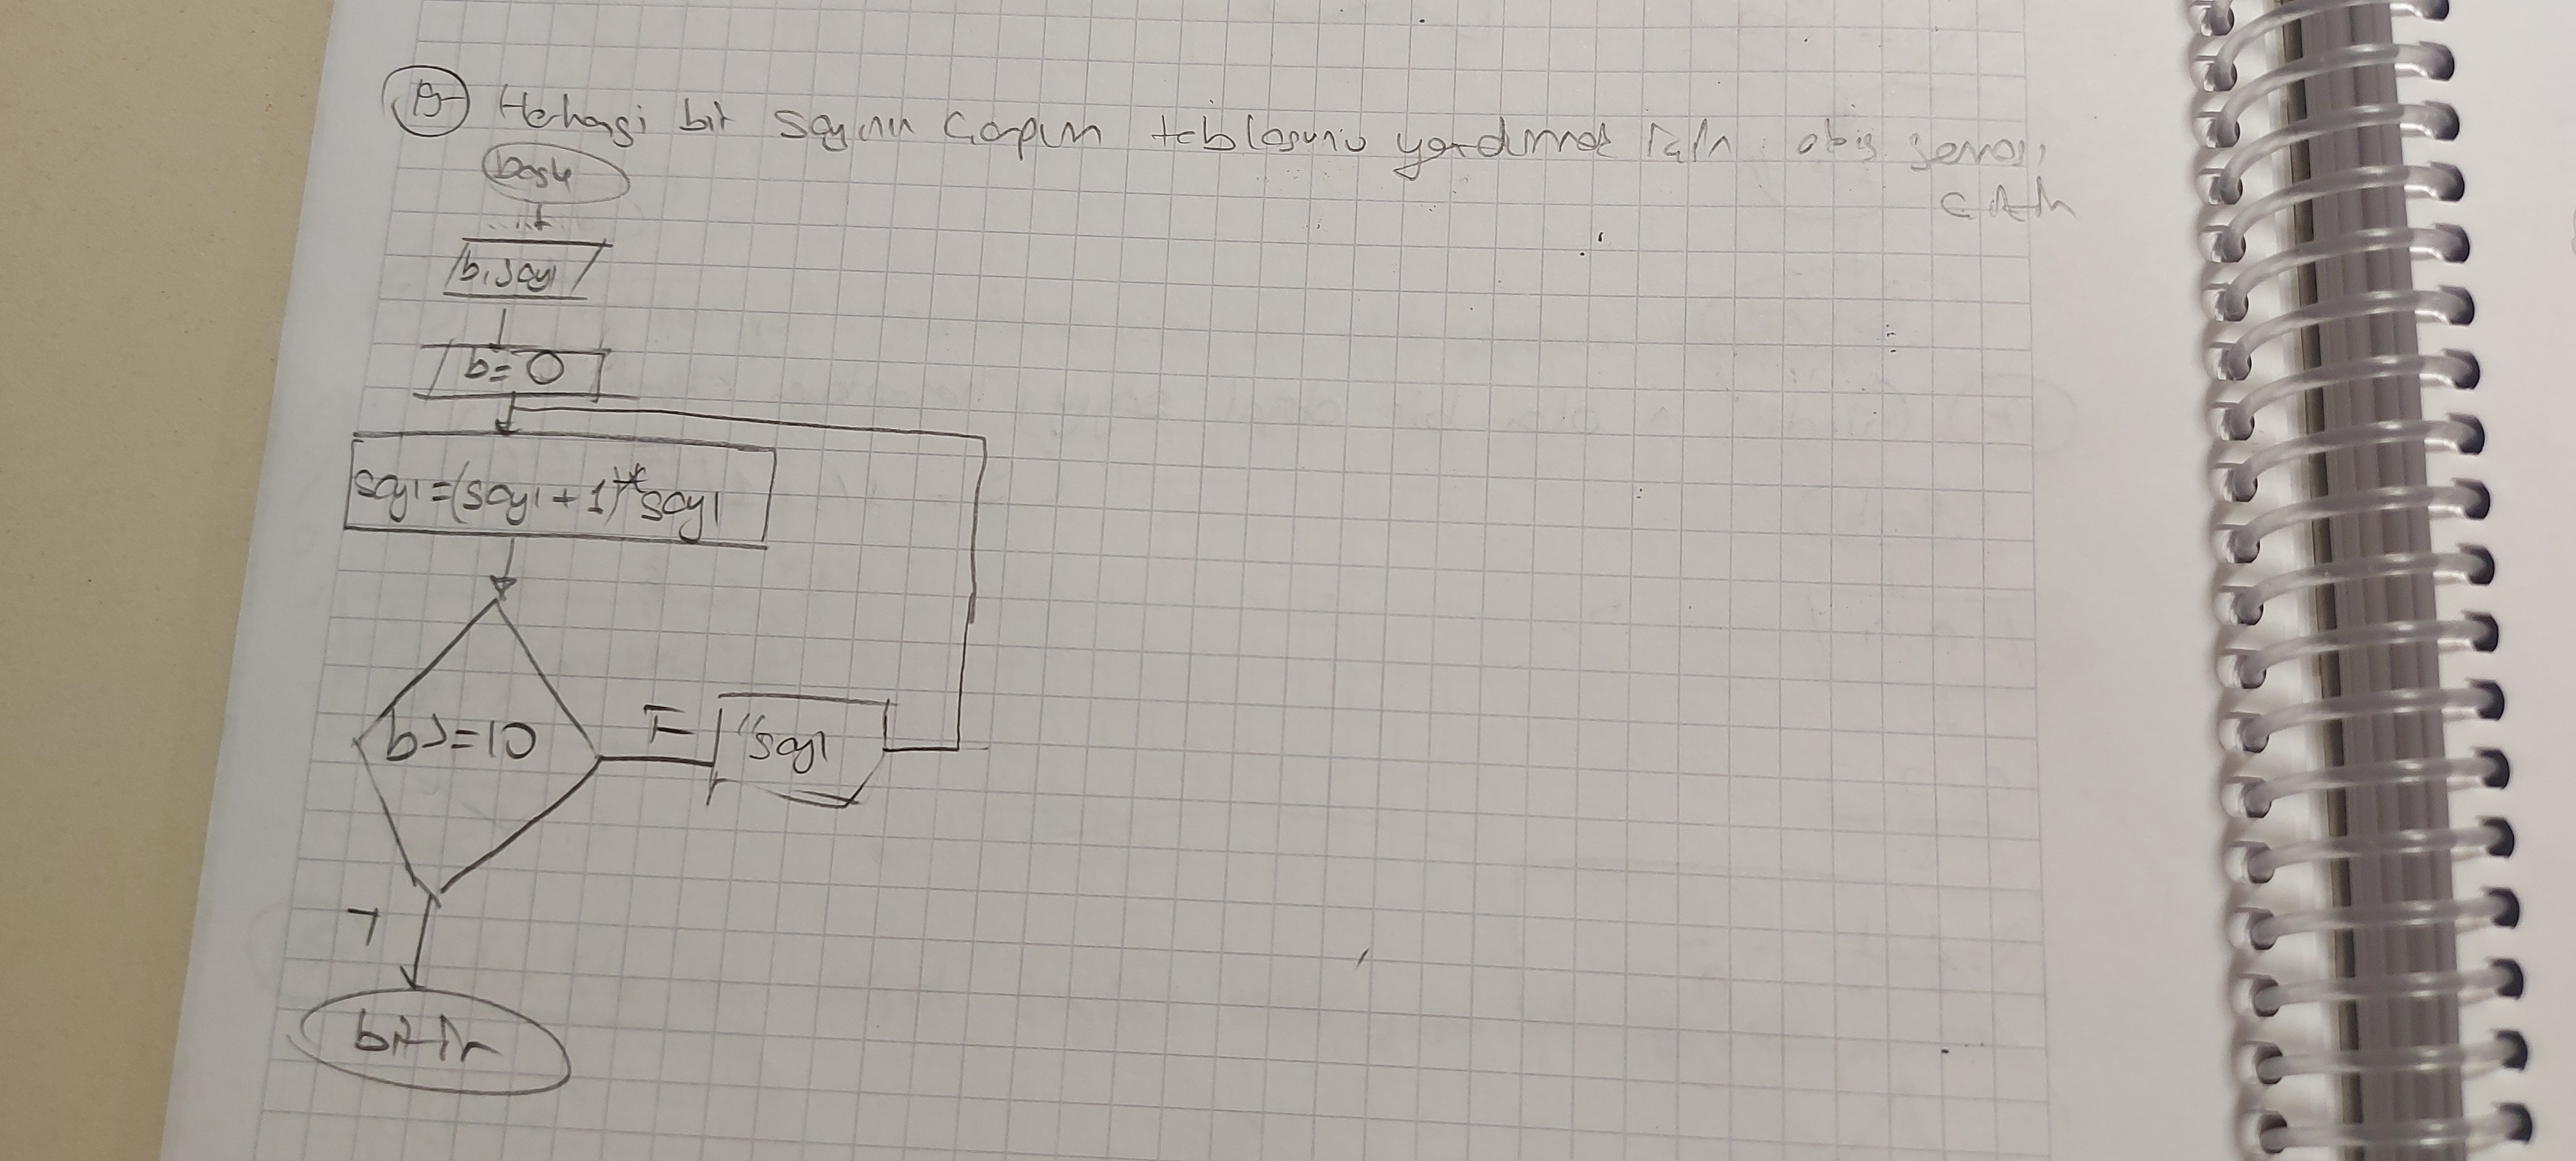 Herhangi bir sayının çarpım tablosunu yazdırmak için akış şeması
çizin
başla
bi sayı
b=0
sayı=(sayı+1)*sayı
b<=10
"sayı
bitir